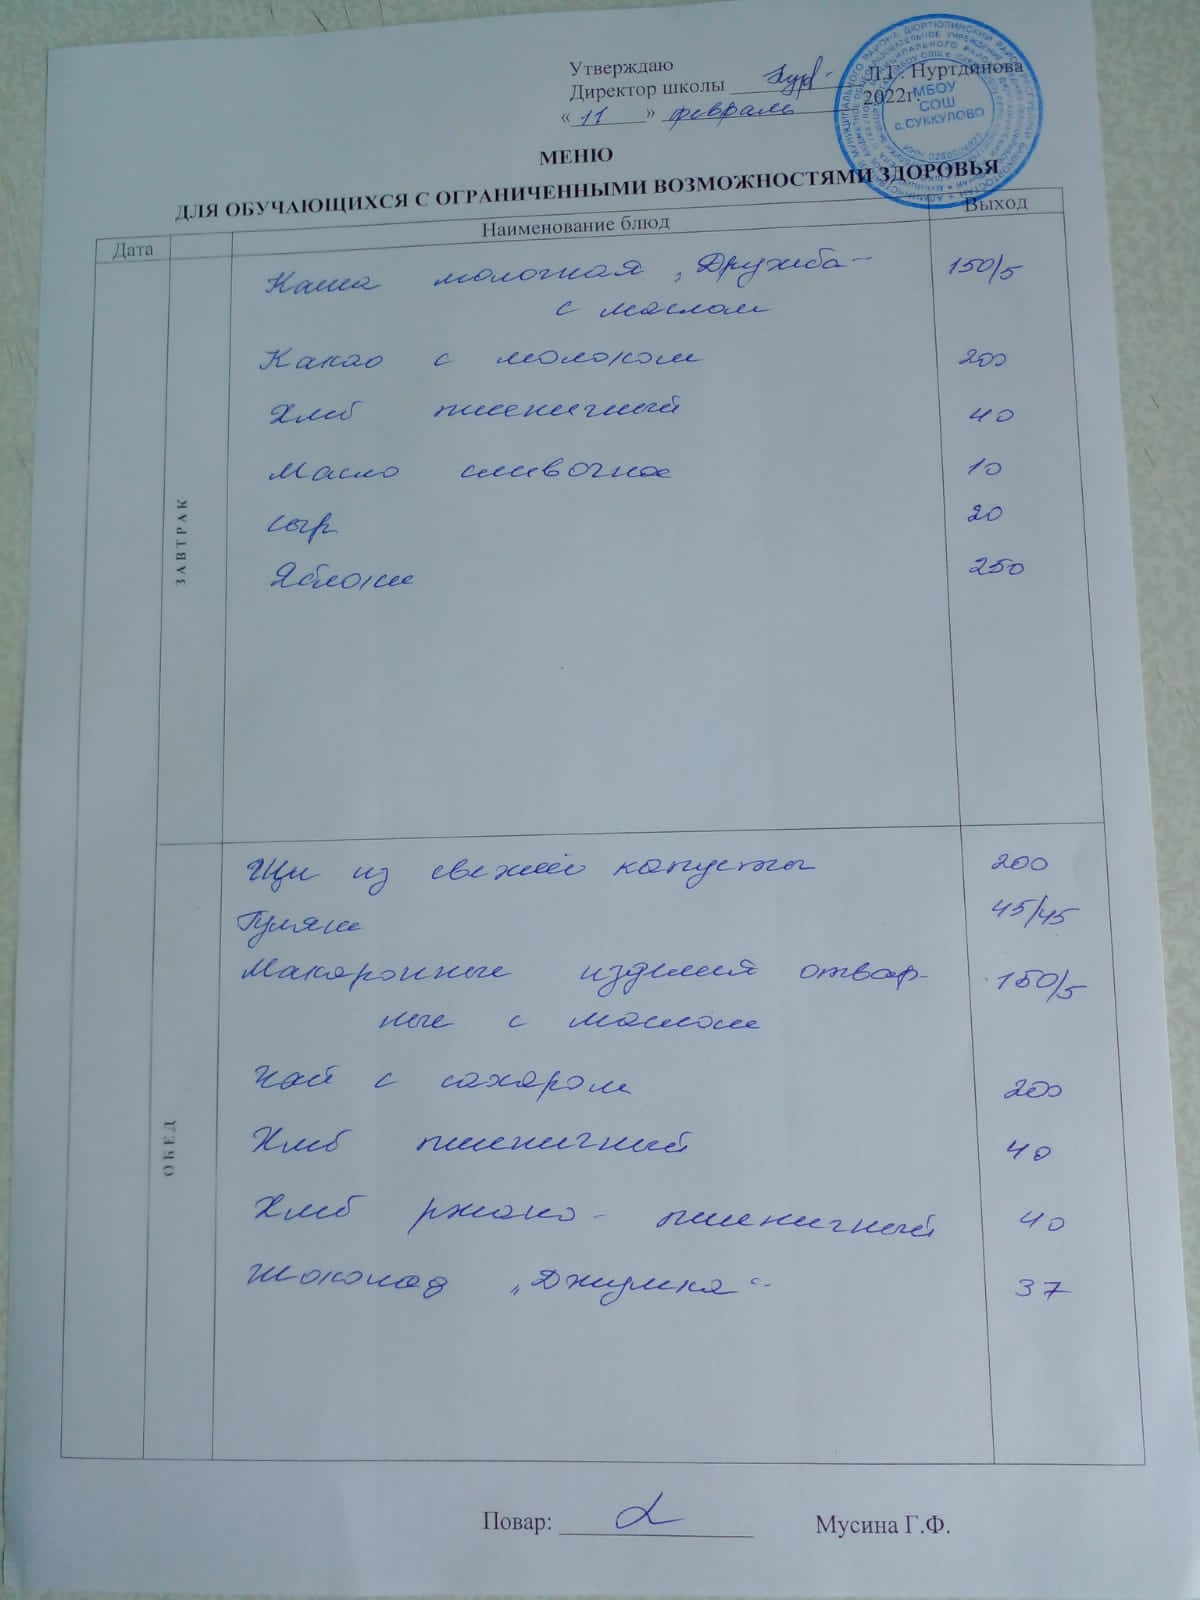 Утверждаю
Директор школы Л.Г. Нуртдинова
« 11 » февраль 2022г.
МБОУ
СОШ
с.СУККУЛОВО
МЕНЮ
ДЛЯ ОБУЧАЮЩИХСЯ С ОГРАНИЧЕННЫМИ ВОЗМОЖНОСТЯМИ ЗДОРОВЬЯ
Дата Наименование блюд Выход
ЗАВТРАК
Каша молочная „Дружба“ 150/5
с маслом
Какао с молоком 200
Хлеб пшеничный 40
Масло сливочное 10
Сыр 20
Яблоки 250
ОБЕД
Щи из свежей капусты 200
Гуляш 45/45
Макаронные изделия отвар- 150/5
ные с маслом
Чай с сахаром 200
Хлеб пшеничный 40
Хлеб ржано-пшеничный 40
Шоколад „Джумка“ 37
Повар: Мусина Г.Ф.